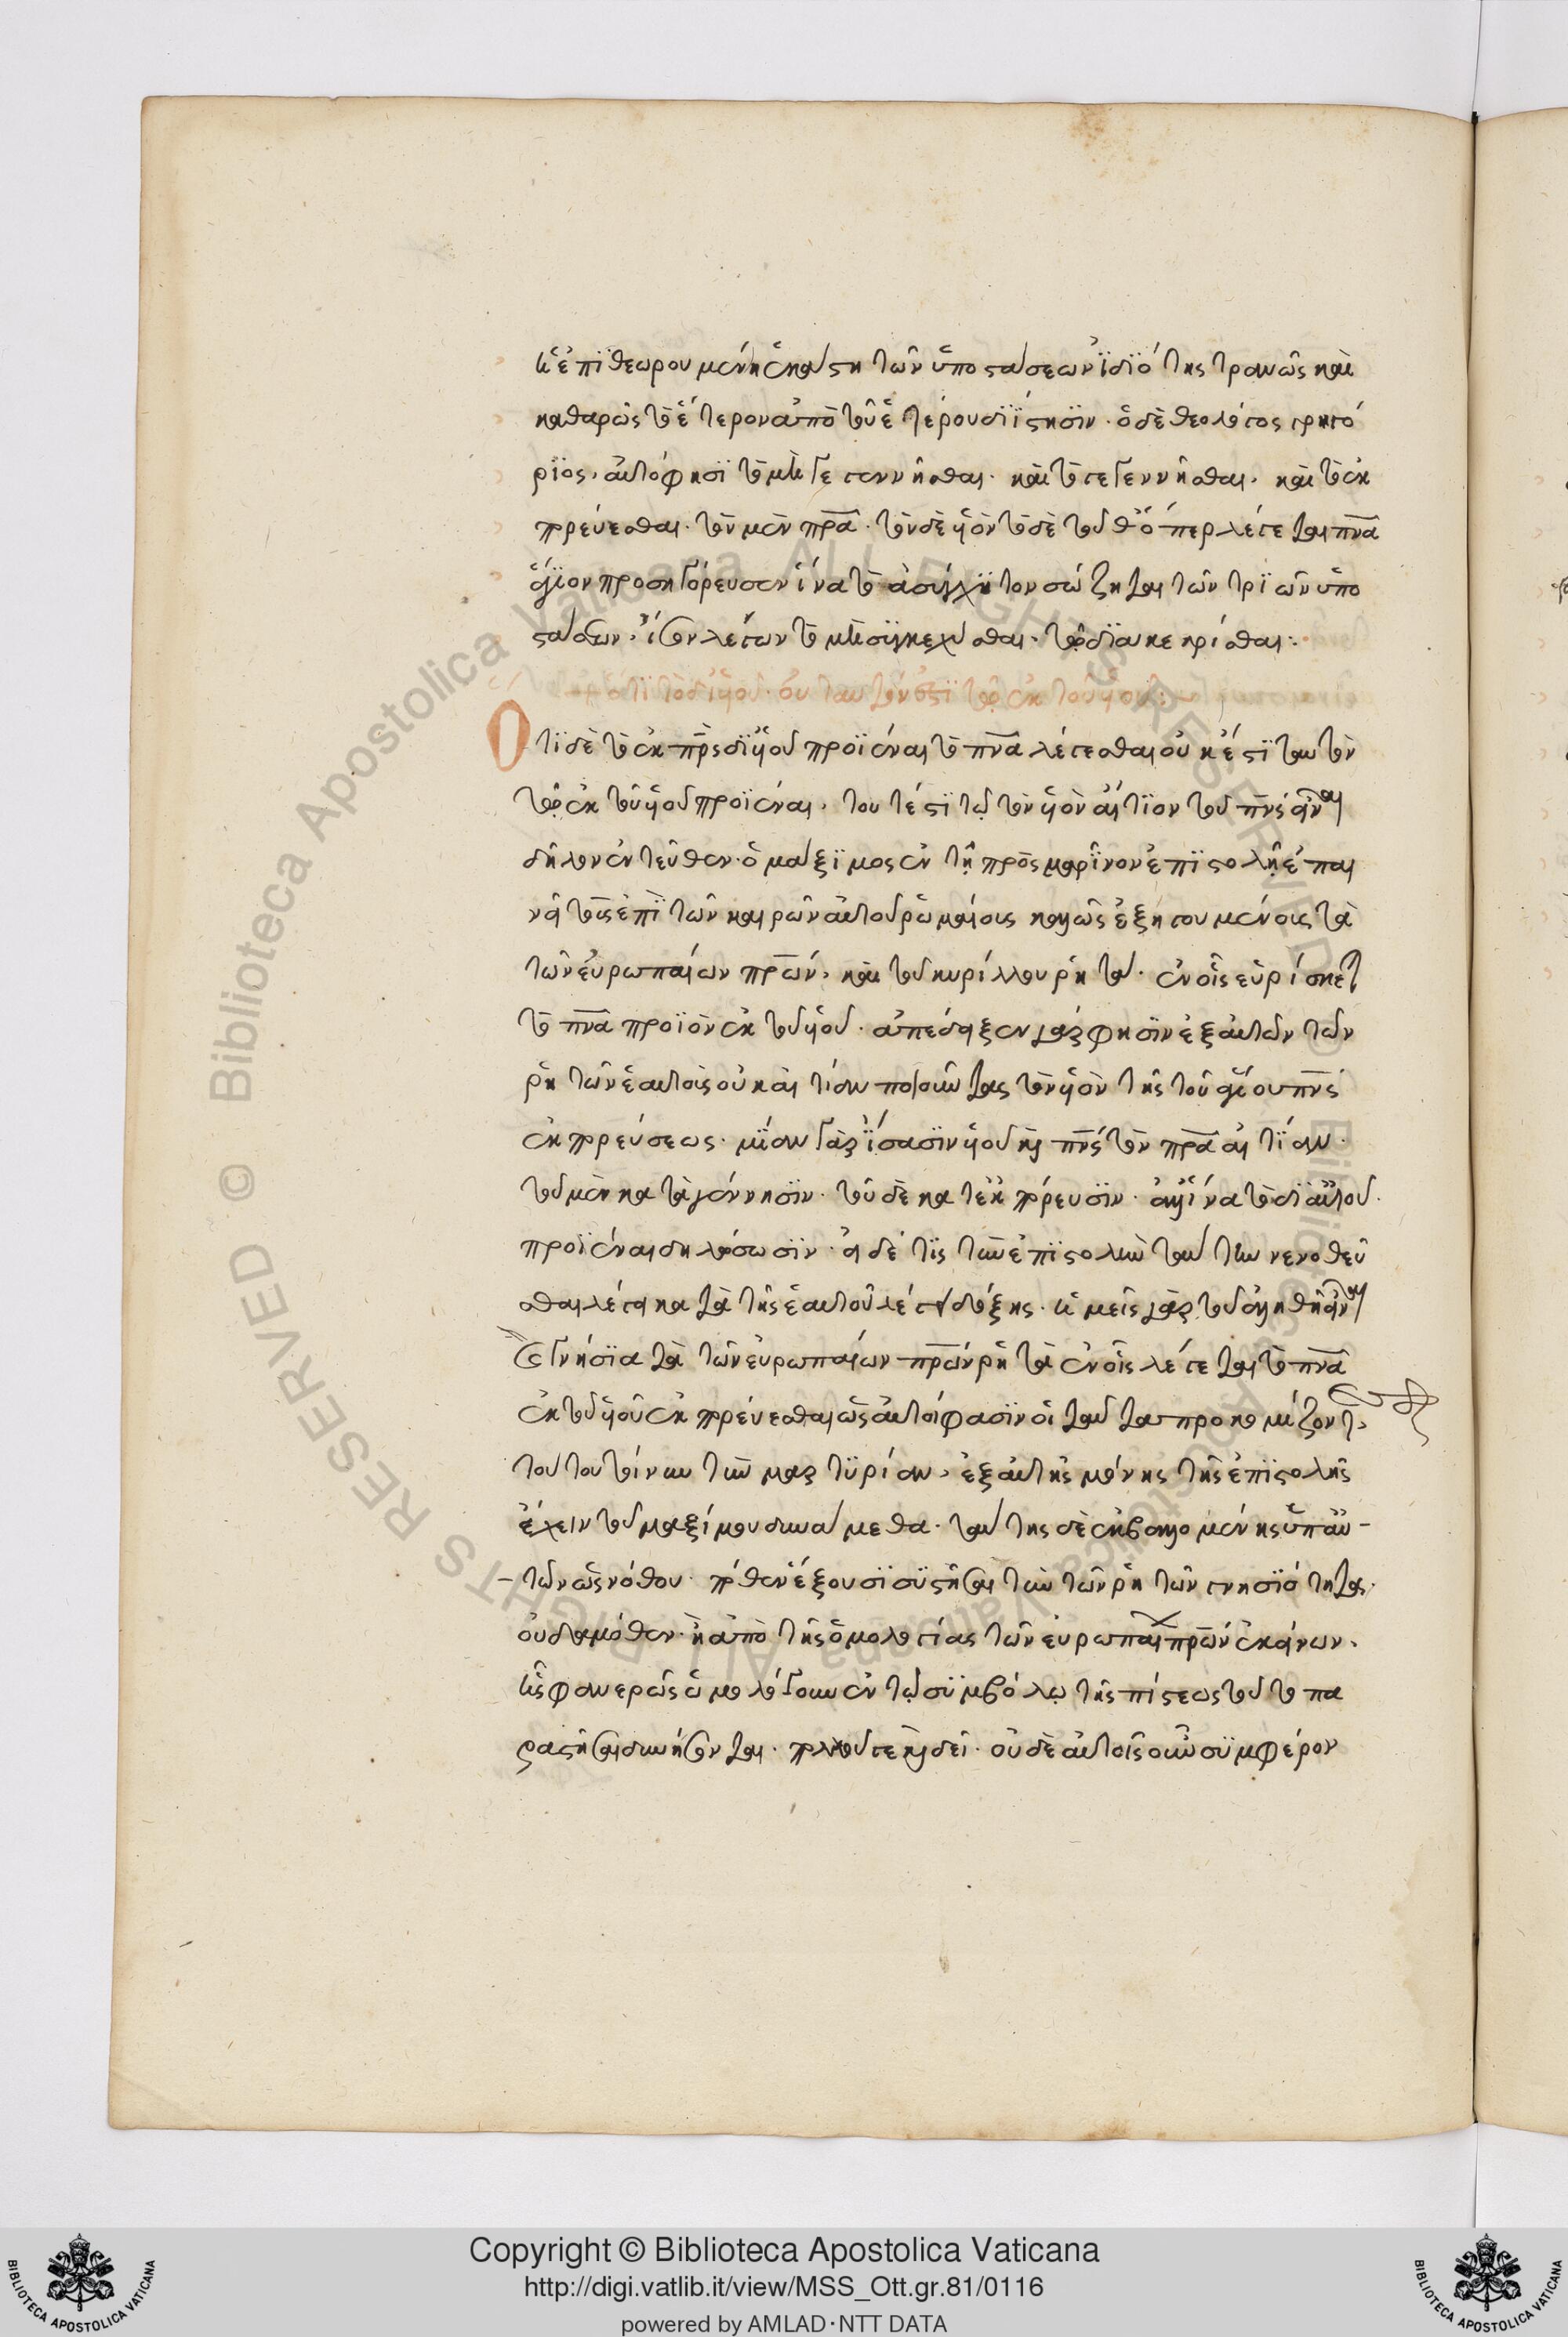 ἡ ἐπιθεωρουμένη ἑκάστη τῶν ὑποστάσεων ἰδιότης τρανῶς καὶ
καθαρῶς τὸ ἕτερον ἀπὸ τοῦ ἑτέρου διΐστησιν. ὁ δὲ θεολόγος γρηγό
ριος, αὐτό φησι τὸ μὴ γεγεννῆσθαι. καὶ τὸ γεγεννῆσθαι. καὶ τὸ ἐκ
πορεύεσθαι. τὸν μὲν πρα. τὸν δὲ υἱὸν τὸ δὲ τοῦθ ὅπερ λέγεται πνα
ἅγιον προσηγόρευσεν ἵνα τὸ ἀσύγχυτον σώζηται τῶν τριῶν ὑπο
στάσεων. ἴσον λέγων τὸ μὴ συγκεχύσθαι. τῷ διακεκρίσθαι:
ὅτι τὸ δι υἱοῦ. οὐ ταυτόν ἐστι τῷ ἐκ τοῦ υἱοῦ:
Οτι δὲ τὸ ἐκ πρς δι υἱοῦ προϊέναι τὸ πνα λέγεσθαι οὐκ ἔστι ταυτὸν
τῷ ἐκ τοῦ υἱοῦ προϊέναι, τουτέστι τῷ τὸν υἱὸν αἴτιον τοῦ πνς εἶναι
δῆλον ἐντεῦθεν. ὁ μάξιμος ἐν τῇ πρὸς μαρῖνον ἐπιστολῇ ἐπαι
νεῖ τοῖς ἐπὶ τῶν καιρῶν αὐτοῦ ῥωμαίοις καλῶς ἐξηγουμένοις τὰ
τῶν εὐρωπαίων πρων, καὶ τοῦ κυρίλλου ῥητά. ἐν οἷς εὑρίσκετ
τὸ πνα προϊὸν ἐκ τοῦ υἱοῦ. ἀπέδειξαν γάρ φησιν ἐξ αὐτῶν τῶν
ῥητῶν ἑαυτοὺς οὐκ αἰτίαν ποιοῦντας τὸν υἱὸν τῆς τοῦ ἁγίου πνς
ἐκπορεύσεως. μίαν γὰρ ἴσασιν υἱοῦ καὶ πνς τὸν πρα αἰτίαν.
τοῦ μὲν κατὰ γέννησιν. τοῦ δὲ κατ ἐκπόρευσιν. ἀλλ ἵνα τὸ δι αὐτοῦ.
προϊέναι δηλώσωσιν. εἰ δέ τις τὴν ἐπιστολὴν ταύτην νενοθεῦ
σθαι λέγει κατὰ τῆς ἑαυτοῦ λέγει δόξης. ἡμεῖς γὰρ τοῦ ἀληθῆ εἶναι
καὶ γνήσια τὰ τῶν εὐρωπαίων πρων ῥητὰ ἐν οἷς λέγεται τὸ πνα
ἐκ τοῦ υἱοῦ ἐκπορεύεσθαι ὡς αὐτοί φασιν οἱ ταῦτα προκομίζοντ
τούτου τίνα τὴν μαρτυρίαν, ἐξ αὐτῆς μόνης τῆς ἐπιστολῆς
ἔχειν τοῦ μαξίμου δυνάμεθα. ταύτης δὲ ἐκβαλλομένης ὑπ αὐ-
-τῶν ὡς νόθου. πόθεν ἕξουσι συστῆσαι τὴν τῶν ῥητῶν γνησιότητα.
οὐδαμόθεν. ἢ ἀπὸ τῆς ὁμολογίας τῶν εὐρωπαι πρων ἐκείνων.
ἧς φανερῶς ὡμολόγουν ἐν τῷ συμβόλῳ τῆς πίστεως τοῦτο πα
ραστῆσαι δυνήσονται. πολλοῦ γε καὶ δεῖ. οὐδὲ αὐτοῖς οὖν συμφέρον